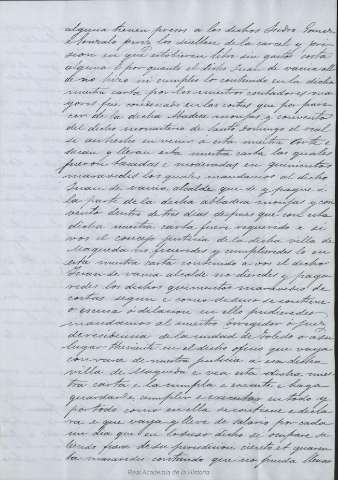 alguna tienen presos a los dichos Isidro Gomez
e Gonzalo Perez los suelten de la carcel y pri-
sion en que estobieren libre sin gasto costa
alguna e por quanto el dicho Juan de varia all
de no hizo ni cumplio lo contenido en la dicha
nuestra carta por los nuestros contadores ma-
yores fue condenado en las costas que por parte
de la dicha Abadesa monjas y convento
del dicho monasterio de Santo Domingo el real
se an hecho en venir a esta nuestra Corte e
sacar e llevar esta nuestra carta las quales
fueron tasadas e moderadas en quinientos
maravedis los quales mandamos al dicho
Juan de varia alcalde que de y pague a
la parte de la dicha abbadesa monjas y con-
vento dentro de tres dias despues que con esta
dicha nuestra carta fuere requerido e si
vos el concejo justicia de la dicha villa de
Maqueda no hicierdes y cumplierdes lo en
esta nuestra carta contenido e vos el dicho
Juan de varia alcalde no dierdes y paga-
redes los dichos quinientos maravedis de
costas segun e como de suso se contiene
o escusa o dilacion en ello pusieredes
mandamos al nuestro corregidor o juez
de residencia de la ciudad de Toledo o a su
lugar theniente en el dicho oficio que vaya
con vara de nuestra justicia a esa dicha
villa de Maqueda e vea esta dicha nues-
tra carta e la cumpla e execute e haga
guardar e cumplir e executar en todo y
por todo como en ella se contiene e decla-
ra e que vaya y lleve de salario por cada
un dia que en lo suso dicho se ocupare sa-
liendo fuera de su jurisdicion ciento et quaren-
ta maravedis contando que no pueda llevar
Real Academia de la Historia